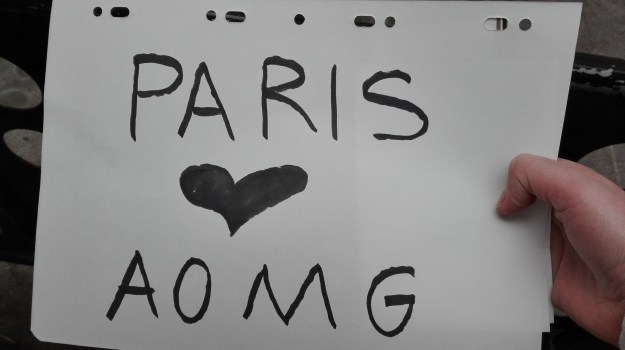 PARIS
♥
AOMG